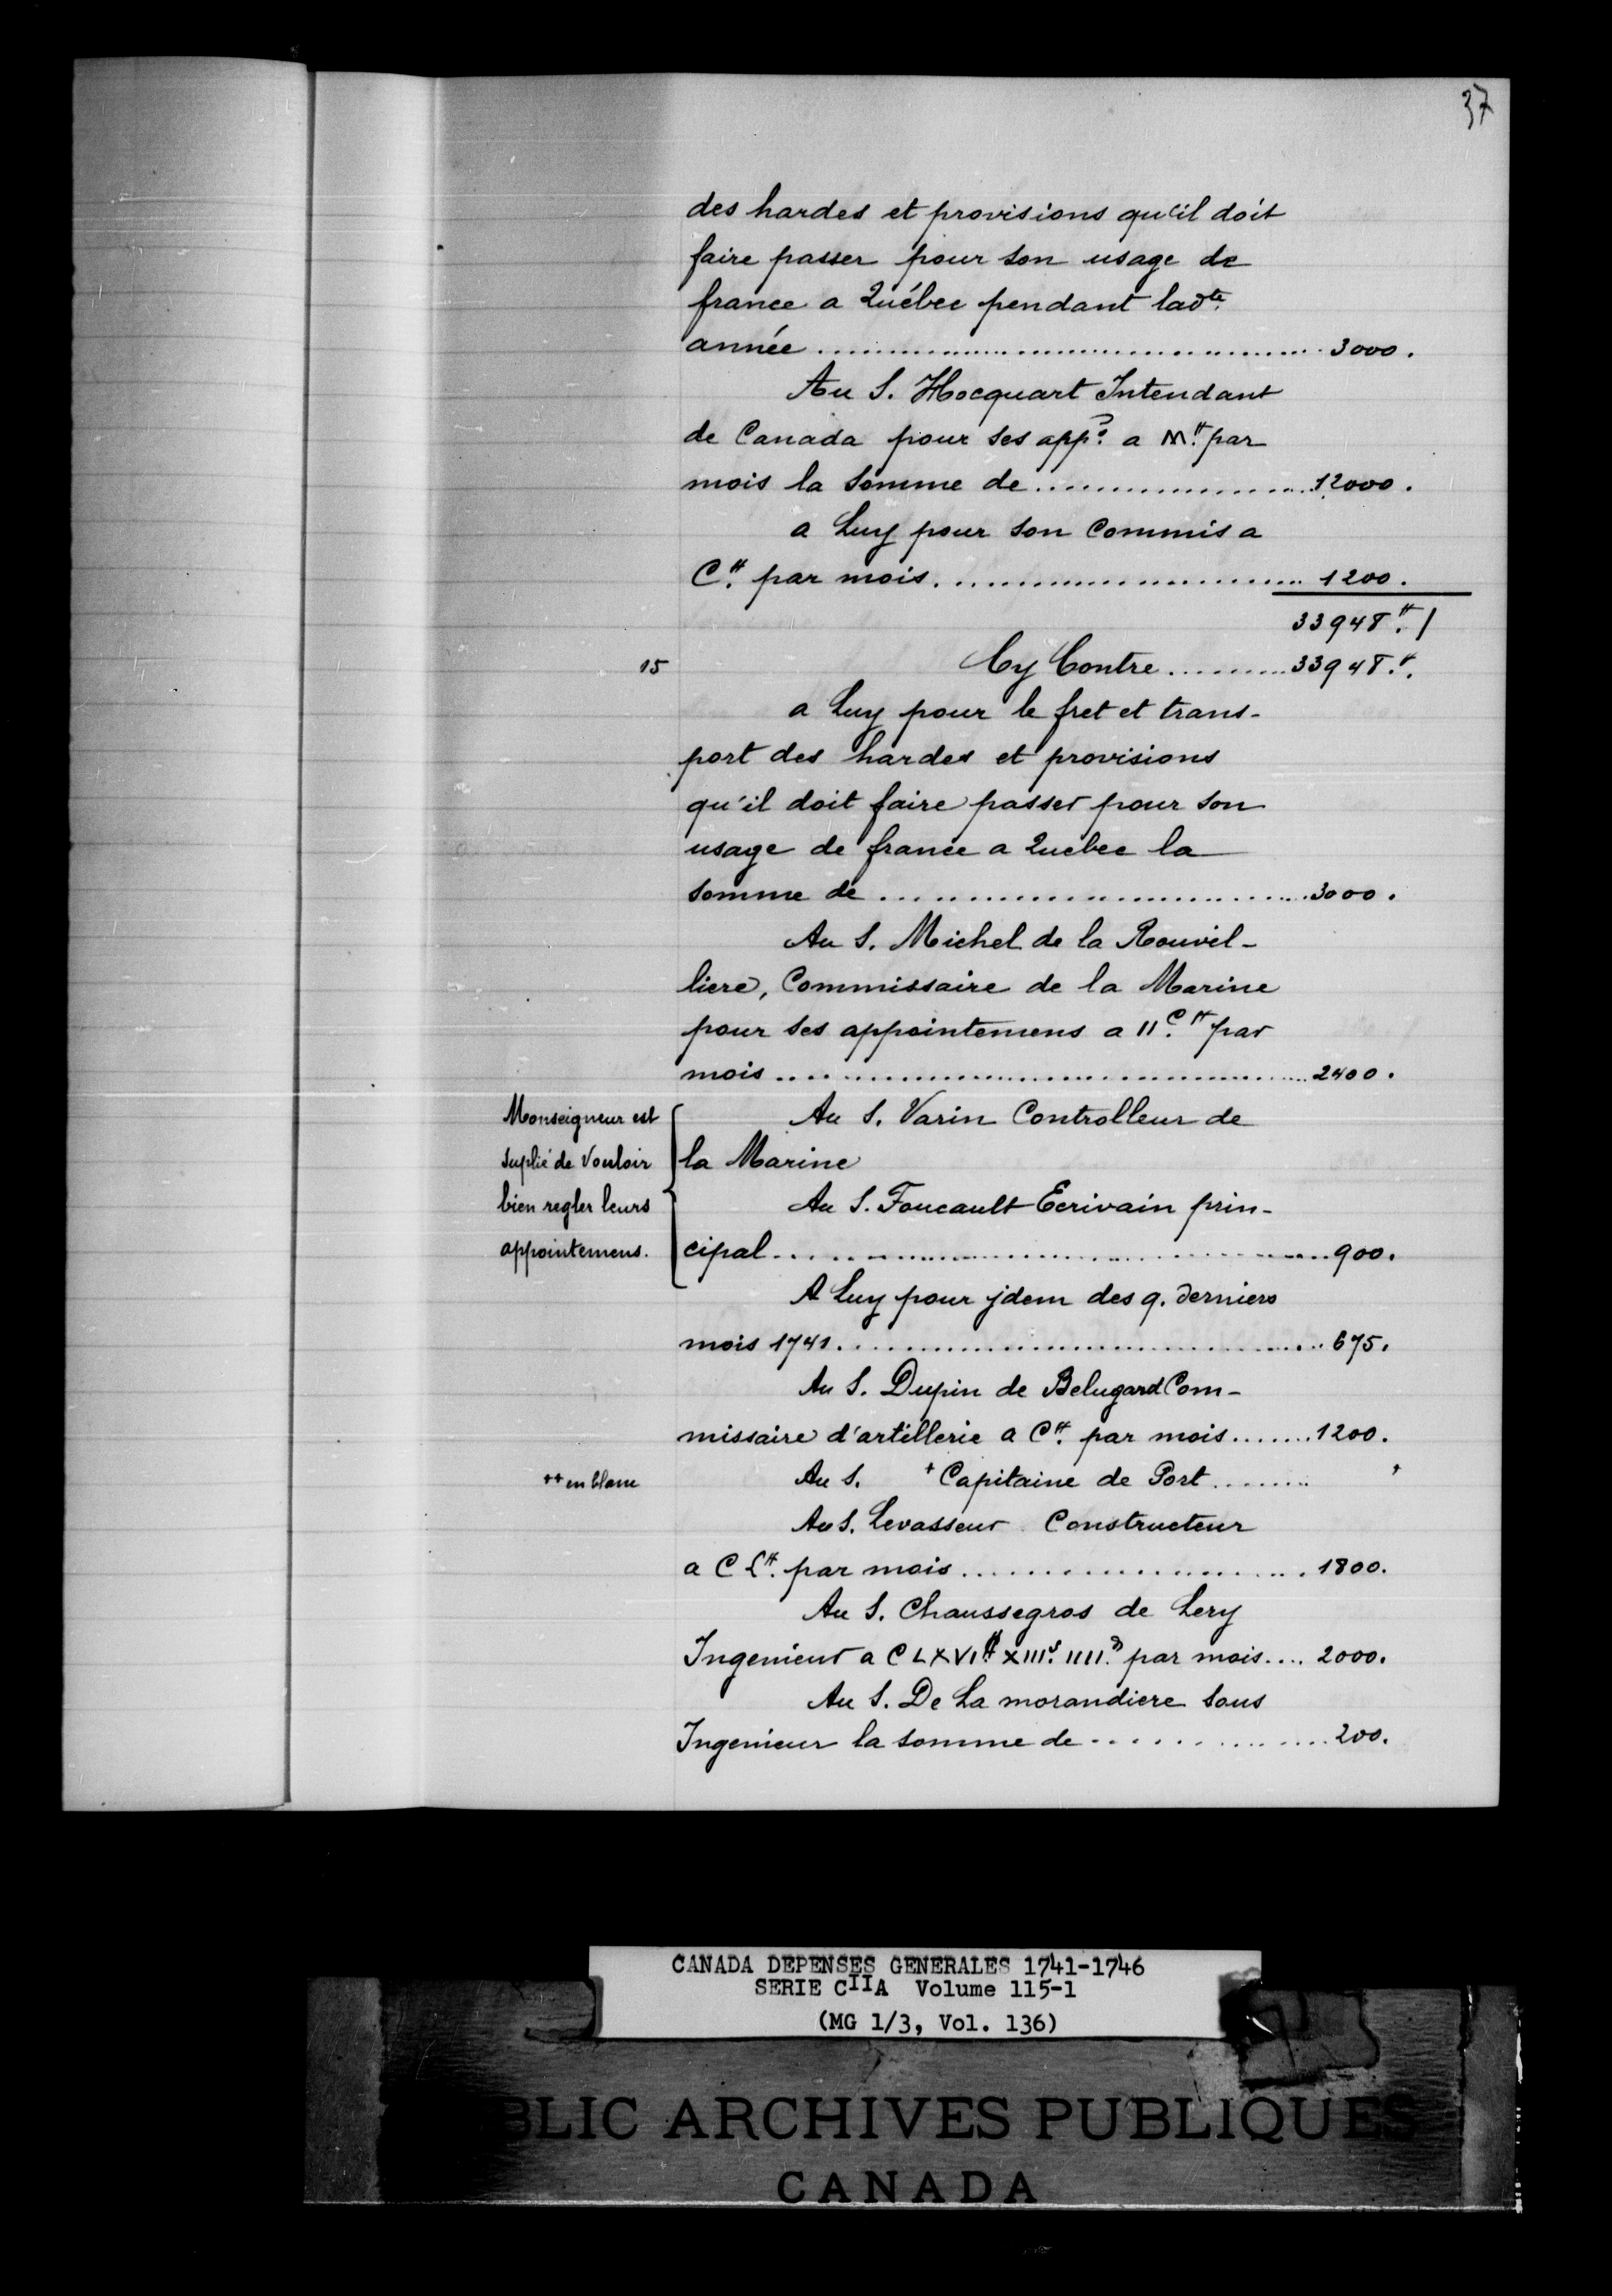 37
des hardes et provisions qu'il doit
faire passer pour son usage de
france a Québec pendant ladte
année ........ 3000.
Au S. Hocquart Intendant
de Canada pour ses apps. a M.# par
mois la somme de ........ 12000.
a Luy pour son Commis a
C.# par mois ........ 1200.
33948.# /
15 Cy Contre ........ 33948.#.
a Luy pour le fret et trans-
port des hardes et provisions
qu'il doit faire passer pour son
usage de france a Quebec la
somme de ........ 3000.
Au S. Michel de la Rouvil-
liere, Commissaire de la Marine
pour ses appointemens a IIC.# par
mois ........ 2400.
Monseigneur est
suplié de Vouloir
bien regler leurs
appointemens.
Au S. Varin Controlleur de
la Marine
Au S. Foucault Ecrivain prin-
cipal ........ 900.
A Luy pour jdem des 9. derniers
mois 1741 ........ 675.
Au S. Dupin de Belugard Com-
missaire d'artillerie a C.# par mois ........ 1200.
++ en blanc
Au S. + Capitaine de Port ........ +
Au S. Levasseur Constructeur
a C L.# par mois ........ 1800.
Au S. Chaussegros de Lery
Ingenieur a CLXVI# XIIIs. IIIId. par mois .... 2000.
Au S. De La morandiere sous
Ingenieur la somme de ........ 200.
CANADA DEPENSES GENERALES 1741-1746
SERIE CIIA Volume 115-1
(MG 1/3, Vol. 136)
BLIC ARCHIVES PUBLIQUES
CANADA